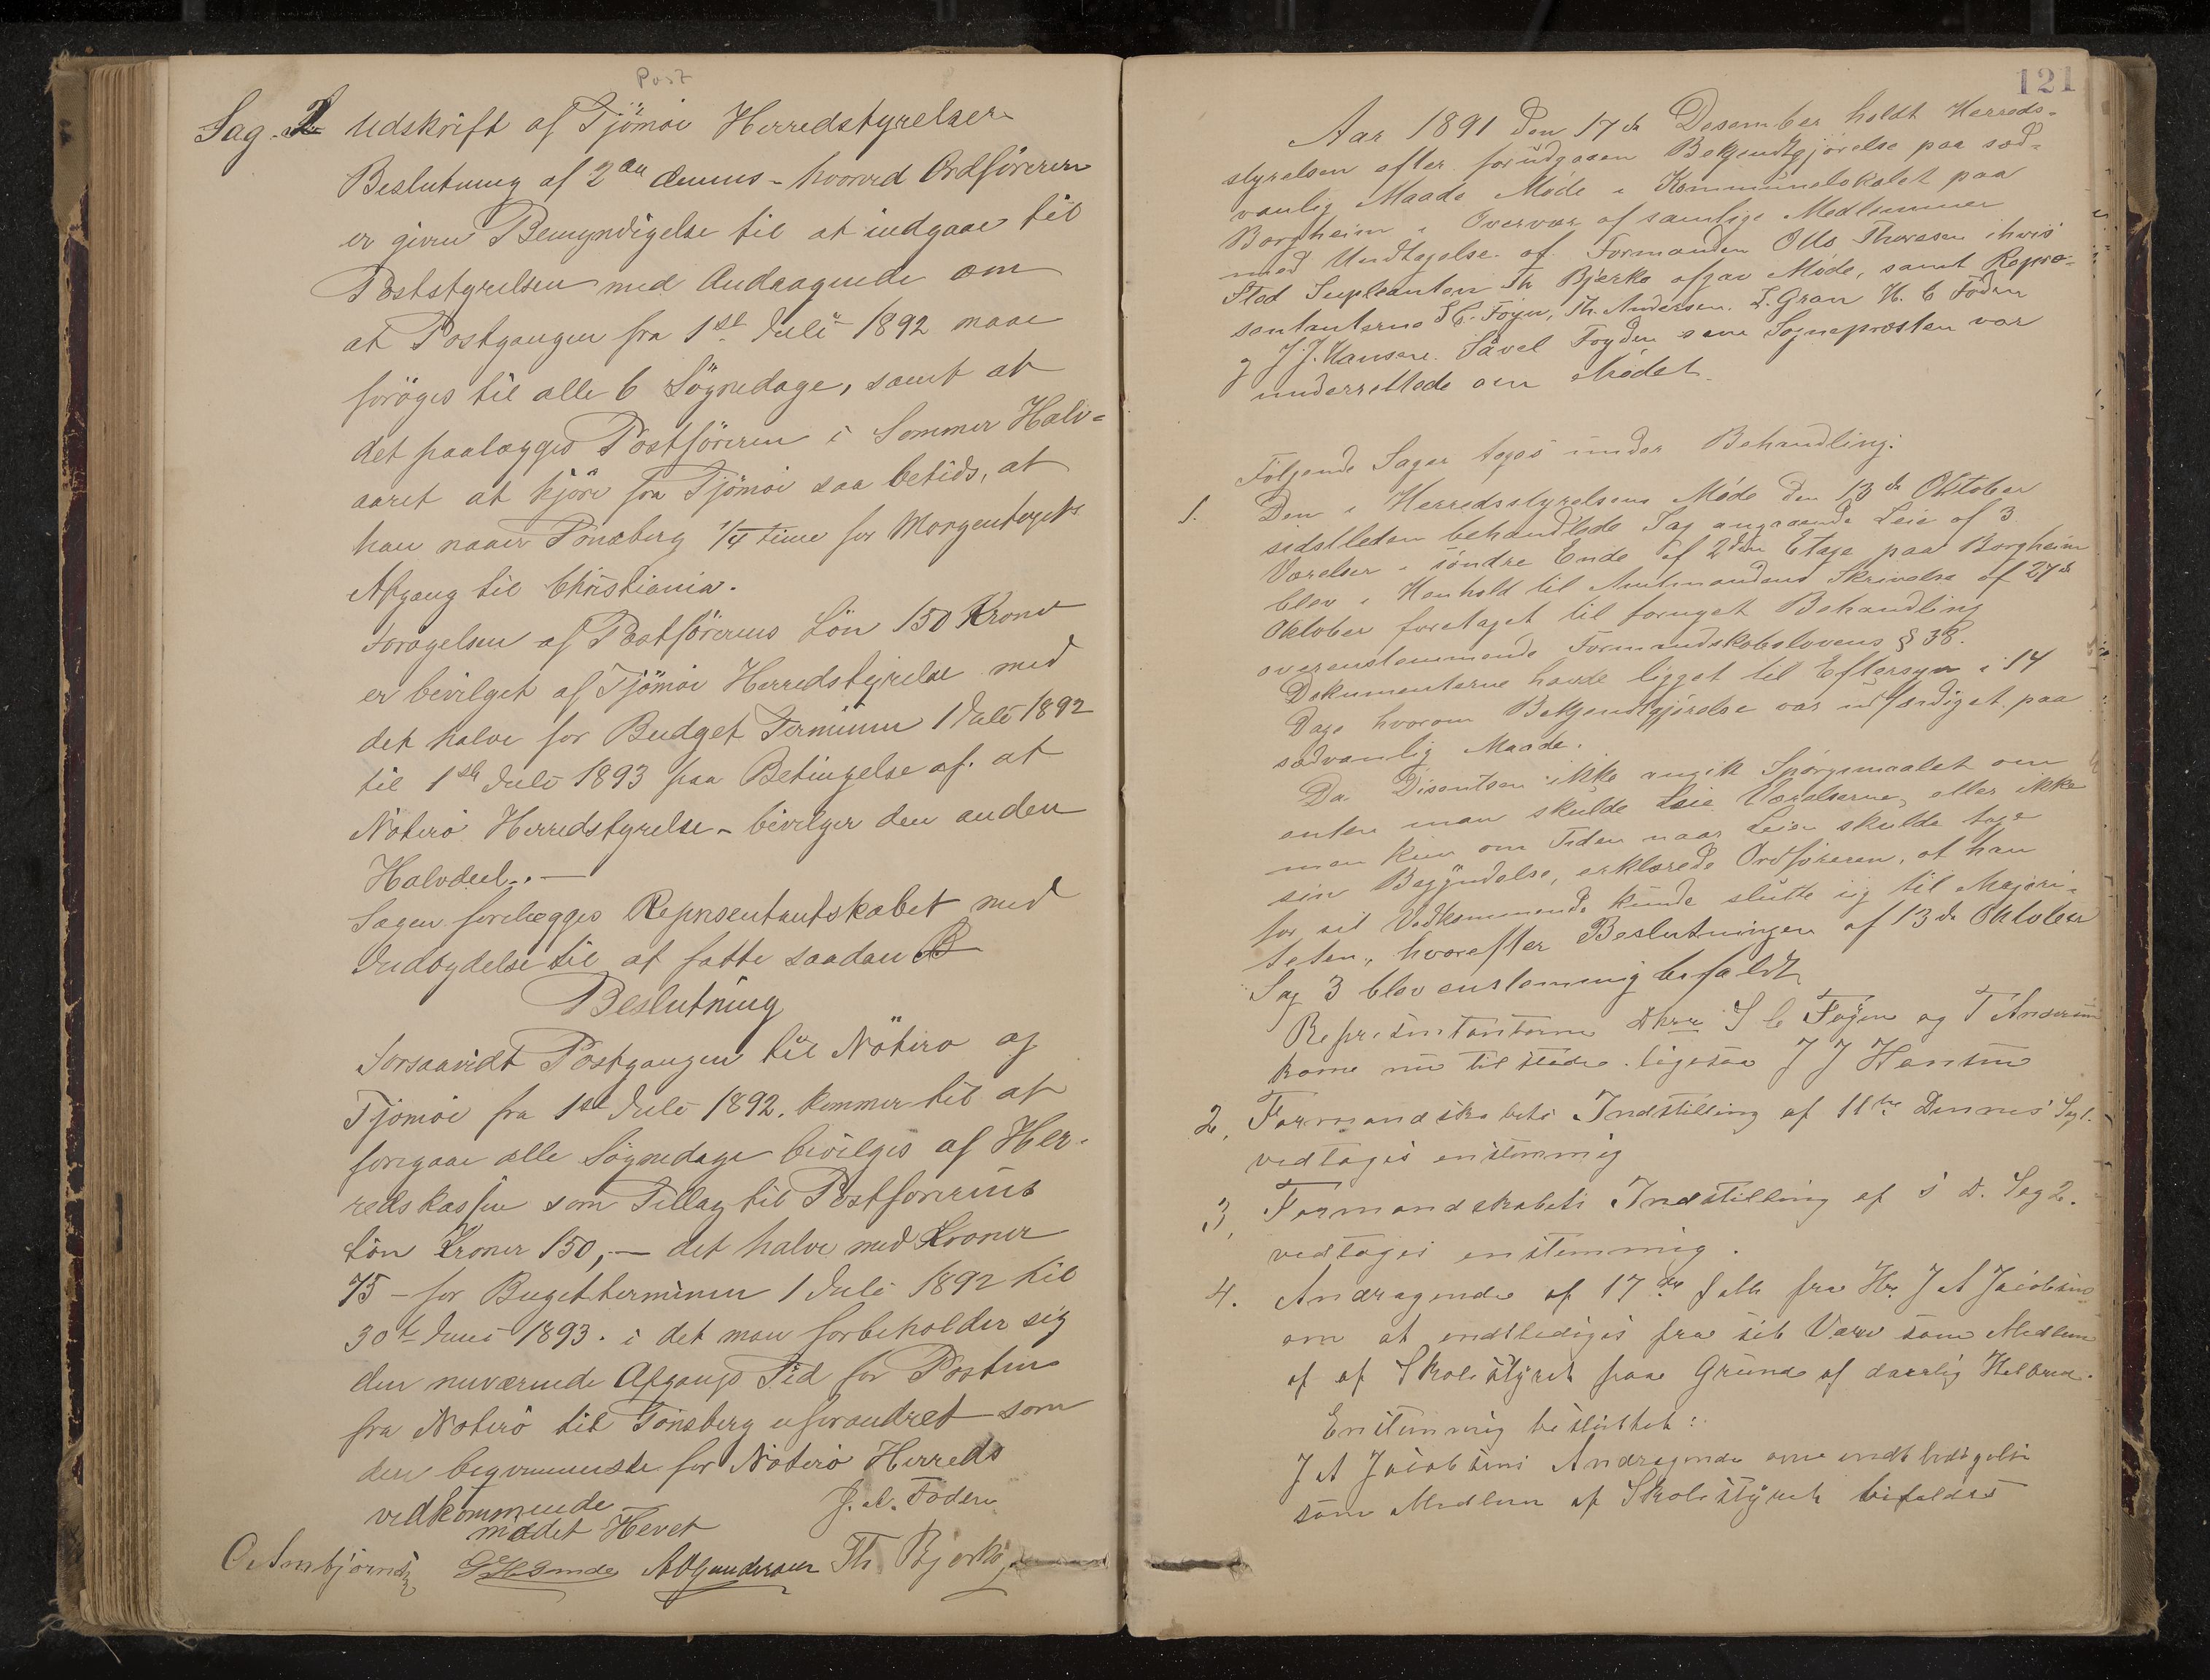 Post
Sag. 2 Udskrift af Tjömöe Herredstyrelses
Beslutning af 2den dennes - hvorved Ordföreren
er given Bemyndigelse til at indgaae til
Poststyrelsen med Andragende om
at Postgangen fra 1ste Juli 1892 maae
foröges til alle 6 Sögnedage, samt at
det paalægges Postföreren i Sommer Halv=
aaret at kjöre fra Tjömöe saa betids, at
han naaer Tönsberg 1/4 time for Morgentogets
Afgang til Christiania.
Forøgelsen af Postförerens Lön 150 Kroner
er bevilget af Tjömöe Herredstyrelse med
det halve for Budget Terminen 1 Juli 1892
til 1ste Juli 1893 paa Betingelse af. at
Nöterö Herredstyrelse - bevilger den anden
Halvdeel. -
Sagen forelægges Repræsentantskabet med
Indbydelse til at fatte saadan B
Beslutning
Forsaavidt Postgangen til Nöterö og
Tjömöe fra 1ste Juli 1892. kommer til at
foregaae alle Sögnedage bevilges af Her-
redskassen som Tillæg til Postförerens
Lön Kroner 150,- det halve med Kroner
75 - for Bugetterminen 1 Juli 1892 til
30te Juni 1893. i det man forbeholder sig
den nuværende Afgangs Tid for Posten
fra Nöterö til Tönsberg uforandret som
den beqvemmeste for Nöterö Herreds
vedkommende
mödet Hevet J. A. Foden
O. Arnbjörnsen A O Gundersen Th Bjerkø
121
Aar 1891 den 17de Desember holdt Herreds-
styrelsen efter forudgaaen Bekjendtgjörelse paa sæd-
vanlig Maade Möde i Kommunelokalet paa
Borgheim i Overvær af samlige Medlemmer
med Undtagelse af Formanden Otto Thoresen i hvis
Sted Supleanten Th Bjerkø afgav Möde, samt Repræ-
sentanterne S C. Föyn, Th. Andersen. L. Gran H. C Foden
og J. J. Hansen. Såvel Fogden som Sogneprosten var
underrettede om Mödet.
Følgende Sager toges under Behandling:
1. Den i Herredsstyrelsens Möde den 13de Oktober
sidstleden behandlede Sag angaaende Leie af 3
Værelser i söndre Ende af 2den Etage paa Borgheim
blev i Henhold til Amtmandens Skrivelse af 27de
Oktober foretaget til fornyet Behandling
overenstemmende Formandskabslovens § 38.
Dokumenterne havde ligget til Eftersyn i 14
Dage hvorom Bekjendtgjörelse var udfærdiget paa
sædvanlig Maade.
Da Disentsen ikke angik Spörgsmaalet om
enten man skulde Leie Værelserne, eller ikke
men kun om Tiden naar Leien skulde tage
sin Begyndelse, erklærede Ordföreren, at han
for sit Vedkommende kunde slutte sig til Majori-
teten, hvorefter Beslutningen af 13de Oktober
Sag 3 blev enstemmig bifaldt
Repræsentanterne Dhrr S C Föyn og T Andersen
kome nu tilstede. ligesaa J J Hansen
2. Formandskabets Indstilling af 11te Dennes Sag 1.
vedtoges enstemmig
3. Formandskabets Indstilling af s D. Sag 2.
vedtoges enstemmig.
4. Andragende af 17de f Mts fra Hr. J A Jacobsen
om at endtlediges fra sit Værv som Medlem
af af Skolestyret paa Grund af daarlig Helbred.
Enstemmig besluttet:
J A Jacobsens Andragende om endtledigelse
som Medlem af Skolestyret bifaldes